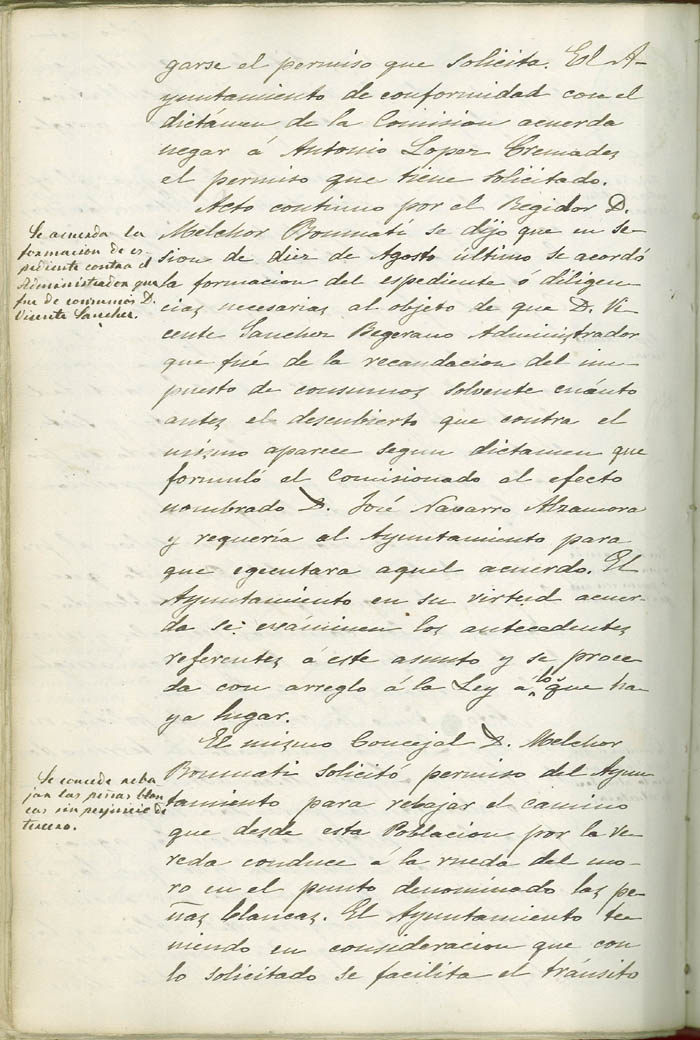 garse el permiso que solicita. El A-
yuntamiento de conformidad con el
dictámen de la Comision acuerda
negar á Antonio Lopez Cremades
el permiso que tiene solicitado.
Se acuerda la
formacion de es-
pediente contra el
Administrador que
fue de consumos D.
Vicente Sanchez.
Acto continuo por el Regidor D.
Melchor Bonmati se dijo que en se-
sion de diez de Agosto ultimo se acordó
la formacion del espediente ó diligen-
cias necesarias al objeto de que D. Vi-
cente Sanchez Begerano Administrador
que fué de la recaudacion del im-
puesto de consumos solvente cuánto
antes el descubierto que contra el
mismo aparece segun dictamen que
formuló el Comisionado al efecto
nombrado D. José Navarro Alzamora
y requería al Ayuntamiento para
que egecutara aquel acuerdo. El
Ayuntamiento en su virtud acuer-
da se examinen los antecedentes
referentes á este asunto y se proce-
da con arreglo á la Ley á lo que ha-
ya lugar.
Se concede reba
jar las peñas blan
cas sin perjuicio de
tercero.
El mismo Concejal D. Melchor
Bonmati solicitó permiso del Ayun-
tamiento para rebajar el camino
que desde esta Poblacion por la ve-
reda conduce á la rueda del mo-
ro en el punto denominado las pe-
ñas blancas. El Ayuntamiento te-
niendo en consideracion que con
lo solicitado se facilita el tránsito